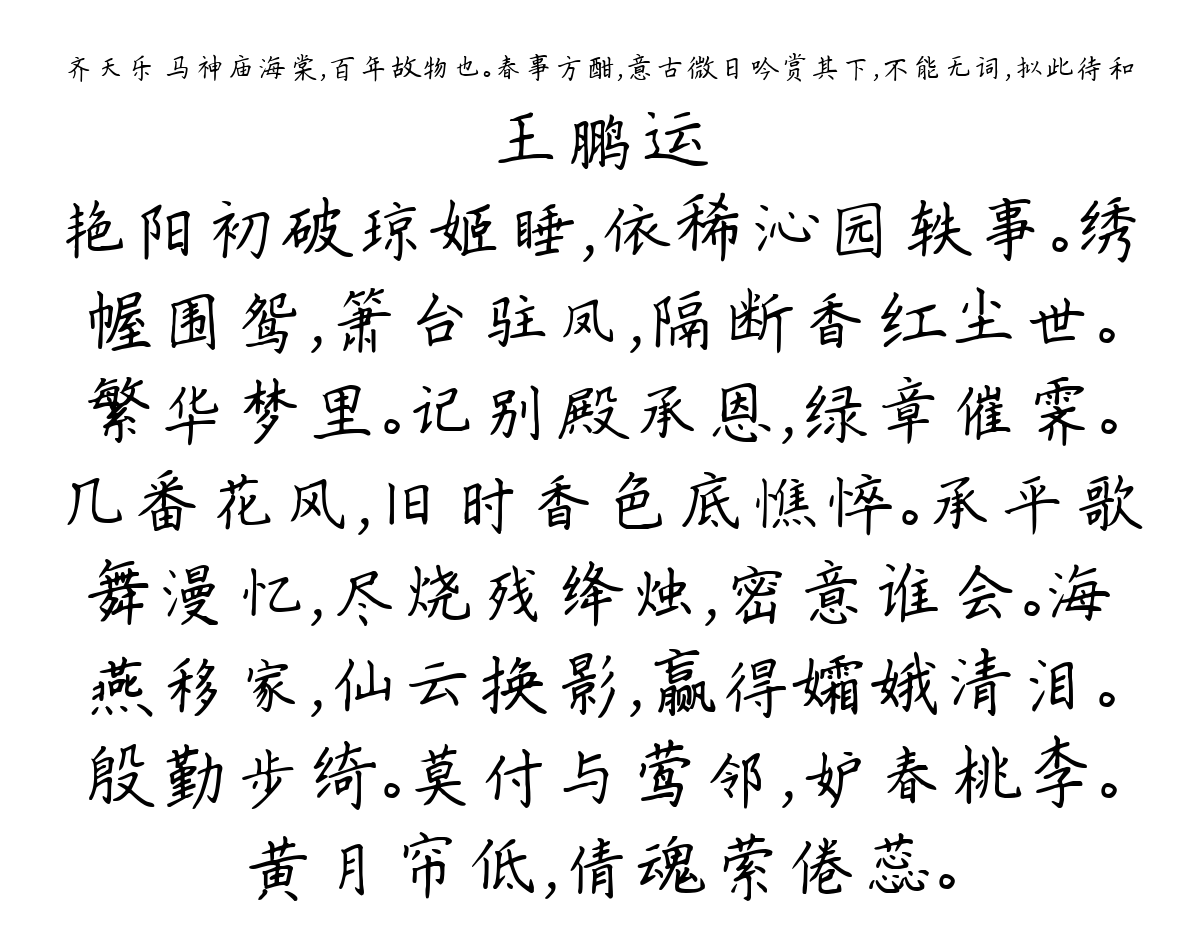 齐天乐 马神庙海棠,百年故物也。春事方酣,意古微日吟赏其下,不能无词,拟此待和
王鹏运
艳阳初破琼姬睡,依稀沁园轶事。绣
幄围鸳,箫台驻凤,隔断香红尘世。
繁华梦里。记别殿承恩,绿章催霁。
几番花风,旧时香色底憔悴。承平歌
舞漫忆,尽烧残绛烛,密意谁会。海
燕移家,仙云换影,赢得孀娥清泪。
殷勤步绮。莫付与莺邻,妒春桃李。
黄月帘低,倩魂萦倦蕊。